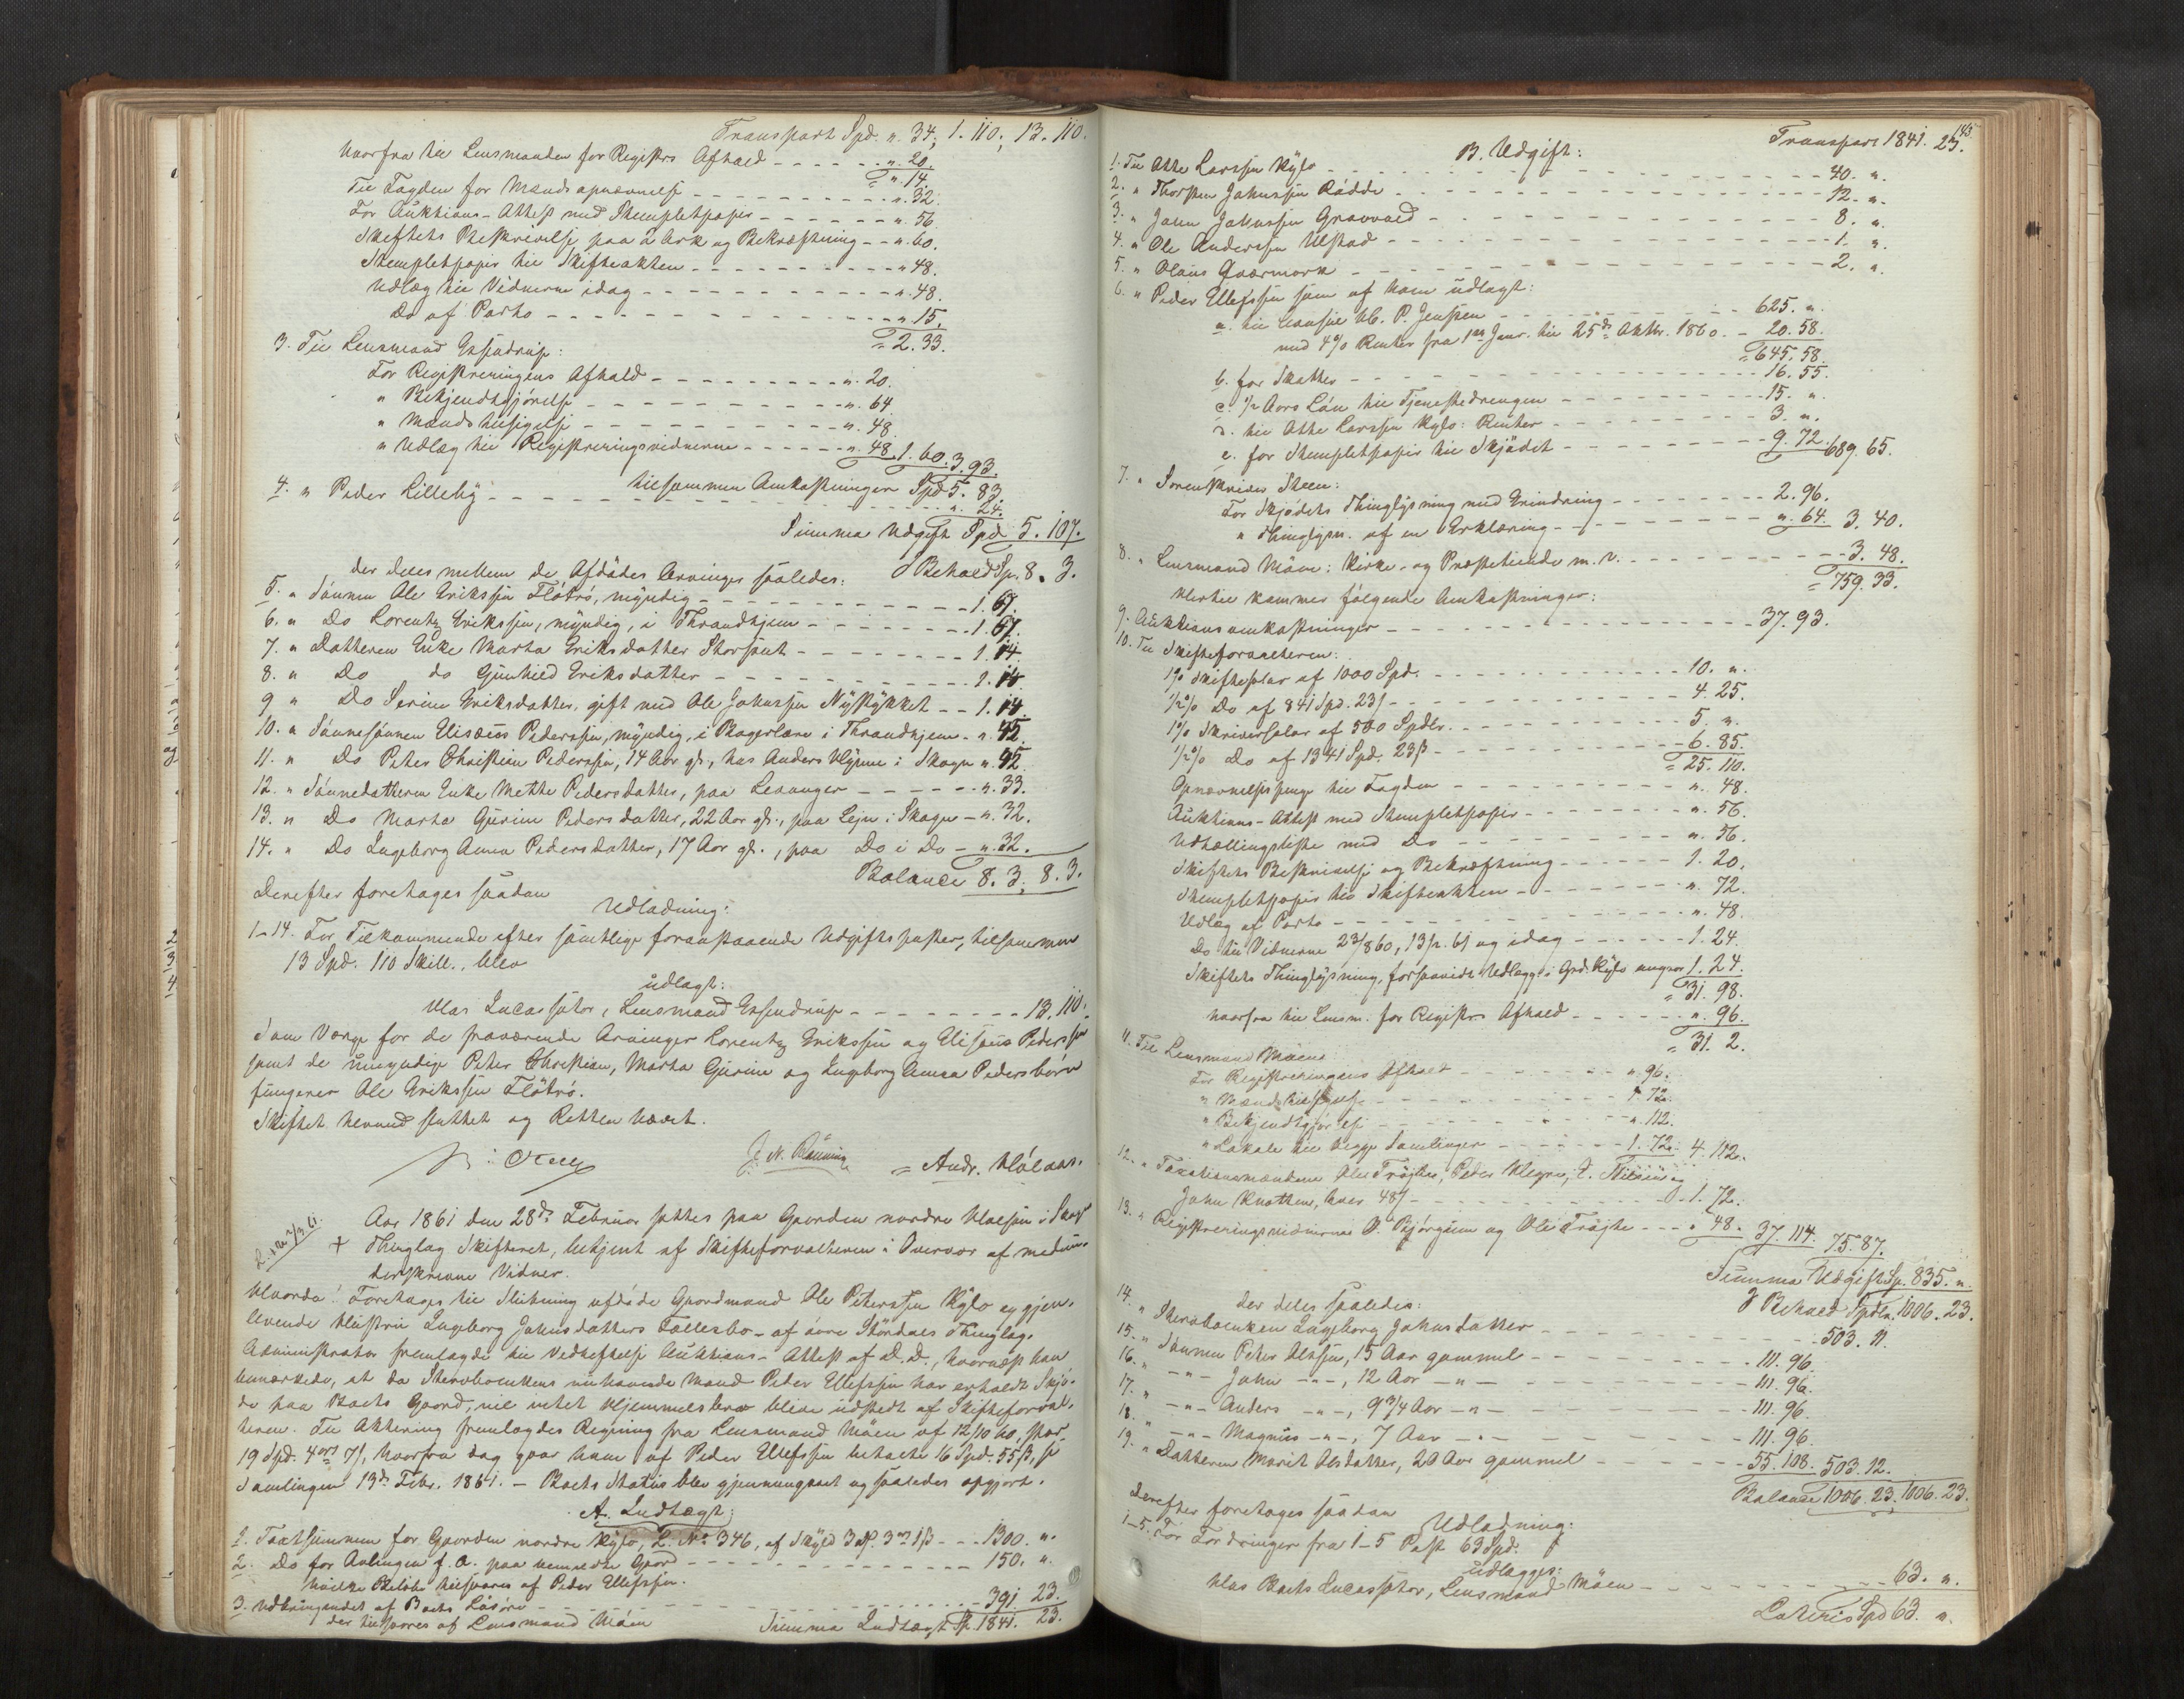 Transport Spd. „ 34; 1. 110; 13. 110.
hvorfra til Lensmanden for Registrs Afhold - - - „ 20.
= „ 14.
Til Fogden for Mandsopnævnelse - - - „ 32.
For Auktions-Attest med Stempletpapir - - - „ 56
Skiftets Beskrivelse paa 2 Ark og Bekræftning - - „ 60.
Stempletpapir til Skifteakten - - - „ 48.
Udlæg til Vidnerne idag - - - „ 48.
Do af Porto - - - „ 15.
= 2. 33.
3. Til Lensmand Essendrup:
For Registreringens Afhold - - - „ 20.
„ Bekjendtgjörelse - - - „ 64
„ Mands tilsigelse - - - „ 48
„ Udlæg til Registreringsvidnerne - - - „ 48. 1. 60. 3. 93.
tilsammen Omkostninger Spd 5. 83.
4. „ Peder Lilleby - - - „ 24.
Summa Udgift Spd 5. 107.
Behold Sp. 8. 3.
der deles mellem de Afdödes Arvinger saaledes:
5. „ Sönnen Ole Erikssen Flötrö, myndig - - - 1. 67.
6. „ Do Lorentz Erikssen, myndig, i Throndhjem - - - 1. 67.
7. „ Datteren Enke Marta Eriksdatter - - - 1. 14
8. „ Do do Gunhild Eriksdatter - - - 1. 14.
9 „ Do Serine Eriksdatter, gift med Ole Johnssen - - 1. 14.
10. „ Sönnesönnen Elisæus Pederssen, myndig, i Bagerlære i Throndhjem - „ 45.
11. „ Do Peter Christian Pederssen, 14 Aar gl., hos Anders i Skogn „ 45.
12. „ Sönnedatteren Enke Mette Pedersdatter, paa Levanger - - - „ 33.
13. „ Do Marta Gurine Pedersdatter, 22 Aar gl., paa i Skogn - „ 32.
14. „ Do Ingeborg Anna Pedersdatter, 17 Aar gl., paa Do i Do - „ 32.
Balance 8. 3; 8. 3.
Derefter foretages saadan
Udlodning:
1-14. For Tilkommende efter samtlige foranstaaende Udgiftsposter, tilsammen
13 Spd. 110 Skill., blev
udlagt:
Hos Incassator, Lensmand Essendrup - - - 13. 110.
Som Værge for de fraværende Arvinger Lorentz Erikssen og Elisæus Pederssen
samt de umyndige Peter Christian, Marta Gurine og Ingeborg Anna Pedersbörn
fungerer Ole Erikssen Flötrö.
Skiftet hermed sluttet og Retten hævet.
Andr. Hólaas.
Aar 1861 den 28de Februar sattes paa Gaarden nordre i Skogn
Thinglag Skifteret, betjent af Skifteforvalteren i Overvær af medun-
derskrevne Vidner.
Hvorda! Foretages til Slutning afdöde Gaardmand Ole Peterssen Kylo og gjen-
levende Hustru Ingeborg Johnsdatters Fællesbo - af övre Stördals Thinglag.
Administrator fremlagde til Vedheftelse Auktions-Attest af D.D., hvornæst han
bemærkede, at da Stervboenkens nuhavende Mand Peder Ellefssen har erholdt Skjö-
de paa Boets Gaard, vil intet Hjemmelsbrev blive udstedt af Skifteforval-
teren. Til Aktering fremlagdes Regning fra Lensmand Möen af 12/10 60, stor
19 Spd. 4 ort 7 ß, hvorfra dog gaar ham af Peder Ellefssen betalte 16 Spd. 55 ß, se
Samlingen 19de Febr. 1861. - Boets Status blev gjennemgaaet og saaledes opgjort.
A. Indtægt:
1. Taxtsummen for Gaarden nordre Kylo, L. No 346, af Skyld 3 D. 3 ort 1 ß - - - 1300. „
2. Do for Avlingen f. A. paa bemeldte Gaard - - - 150. „
hvilke Beløb tilsvares af Peder Ellefssen.
3. Udbringendet af Boets Lösöre - - - 391. 23.
der tilsvares af Lensmand Möen
Summa Indtægt Sp. 1841. 23.
143
Transport 1841. 23.
B. Udgift:
1. Til Otte Larssen Kylo - - - 40. „
2. „ Thorsten Johnssen Rådde - - - 12. „
3. „ John Johnssen Graavold - - - 8. „
4. „ Ole Anderssen Ulstad - - - 1. „
5. „ Olaus Qværmork - - - 2. „
6. „ Peder Ellefssen som af ham udlagt:
a. til P. Jenssen - - - 625. „
med 4% Renter fra 1ste Janr. til 25de Oktbr. 1860. - 20. 58.
= 645. 58.
b. for Skatter - - - 16. 55.
c. 1/2 Aars Lön til Tjenestedrengen - - - 15. „
d. til Otte Larssen Kylo: Renter - - - 3. „
e. for Stempletpapir til Skjödet - - - 9. 72. 689. 65.
7. „ Sorenskriver Steen:
For Skjödets Thinglysning med Erindring - - - 2. 96.
„ Thinglysn. af en Erklæring - - - „ 64. 3. 40.
8. „ Lensmand Möen: Kirke- og Præstetiende m. v. - - - 3. 48.
= 759. 33.
Hertil kommer fölgende Omkostninger:
9. Auktionsomkostninger - - - 37. 93.
10. Til Skifteforvalteren:
1% Skiftesalær af 1000 Spd. - - - 10. „
1/2% Do af 841 Spd. 23 ß - - - 4. 25.
1% Skriversalær af 500 Spdlr. - - - 5. „
1/2% Do af 1341 Spd. 23 ß - - - 6. 85.
= 25. 110.
Opnævnelsespenge til Fogden - - - „ 48.
Auktions-Attest med Stempletpapir - - - „ 56.
Udtællingsliste med Do - - - „ 56.
Skiftets Beskrivelse og Bekræftning - - - 1. 20.
Stempletpapir til Skifteakten - - - „ 72.
Udlæg af Porto - - - „ 48.
Do til Vidnerne 23/8 60, 19/2 61 og idag - - - 1. 24.
Skiftets Thinglysning, forsaavidt Udlægget i Grd. Kylo angaar 1. 24.
= 31. 98.
hvorfra til Lensm. for Registrs Afhold - - - „ 96.
= 31. 2.
11. Til Lensmand Möen:
For Registreringens Afhold - - - „ 96.
„ Mands tilsigelse - - - 1. 72.
„ Bekjendtgjörelse - - - „ 112.
„ Lokale til begge Samlinger - - - 1. 72. 4. 112.
12. „ Taxationsmændene Ole Fröjte, Peder
John, hver 48 ß - - - 1. 72.
13. „ Registreringsvidnerne O. Bjørgum og Ole Fröjte - - - „ 48. 37. 114. 75. 87.
Summa Udgift Sp. 835. „
Behold Spdlr. 1006. 23.
der deles saaledes:
14. „ Stervboenken Ingeborg Johnsdatter - - - 503. 11.
15. „ Sönnen Peter Olssen, 15 Aar gammel - - - 111. 96.
16. „ - „ - John - „ -, 12 Aar - „ - 111. 96.
17. „ - „ - Anders - „ -, 9 3/4 Aar - „ - 111. 96.
18. „ - „ - Magnus - „ -, 7 Aar - „ - 111. 96.
19. „ Datteren Marit Olsdatter, 20 Aar gammel - - - 55. 108. 503. 12.
Balance 1006. 23. 1006. 23.
Derefter foretages saadan
Udlodning:
1-5. For Fordringer fra 1-5 Post 63 Spd.
udlægges:
Hos Boets Incassator, Lensmand Möen - - - 63. „
Lateris Spd 63. „